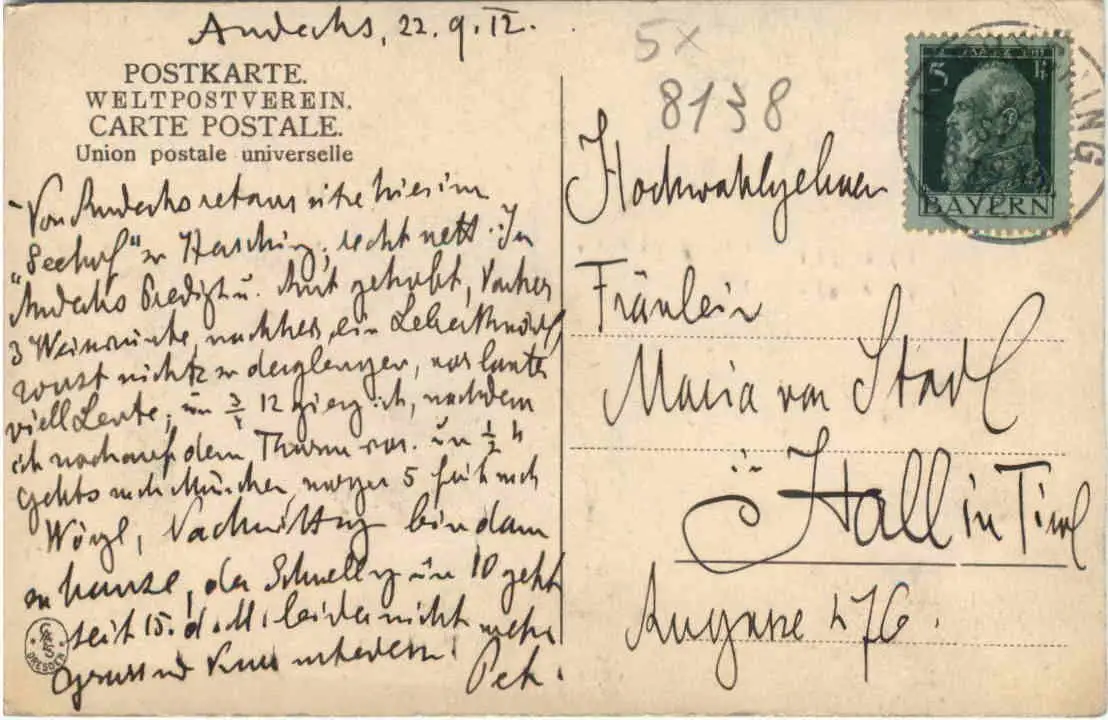 Andechs, 22.9.12.
POSTKARTE.
WELTPOSTVEREIN.
CARTE POSTALE.
Union postale universelle
Von Andechs retour sitze hier im
"Seehof" zu Herrsching, recht nett. In
Andechs Predigt u. Amt gehabt, vorher
3 Weinwürste, nachher ein Leberknödl
sonst nichts zu derglengen, vor lauter
viell Leute, um 3/4 12 gieng ich, nachdem
ich noch auf dem Thurm war. um 1/2 4
gehts nach München, morgen 5 früh nach
Wörgl, Nachmittag bin dann
zu hause, der Schnellzug um 10 geht
seit 15. d. M. leider nicht mehr
Gruss und Kuss
5x
8138
5 Pf
BAYERN
Hochwohlgeboren
Fräulein
Maria von Stadl
in
Hall in Tirol
DRESDEN